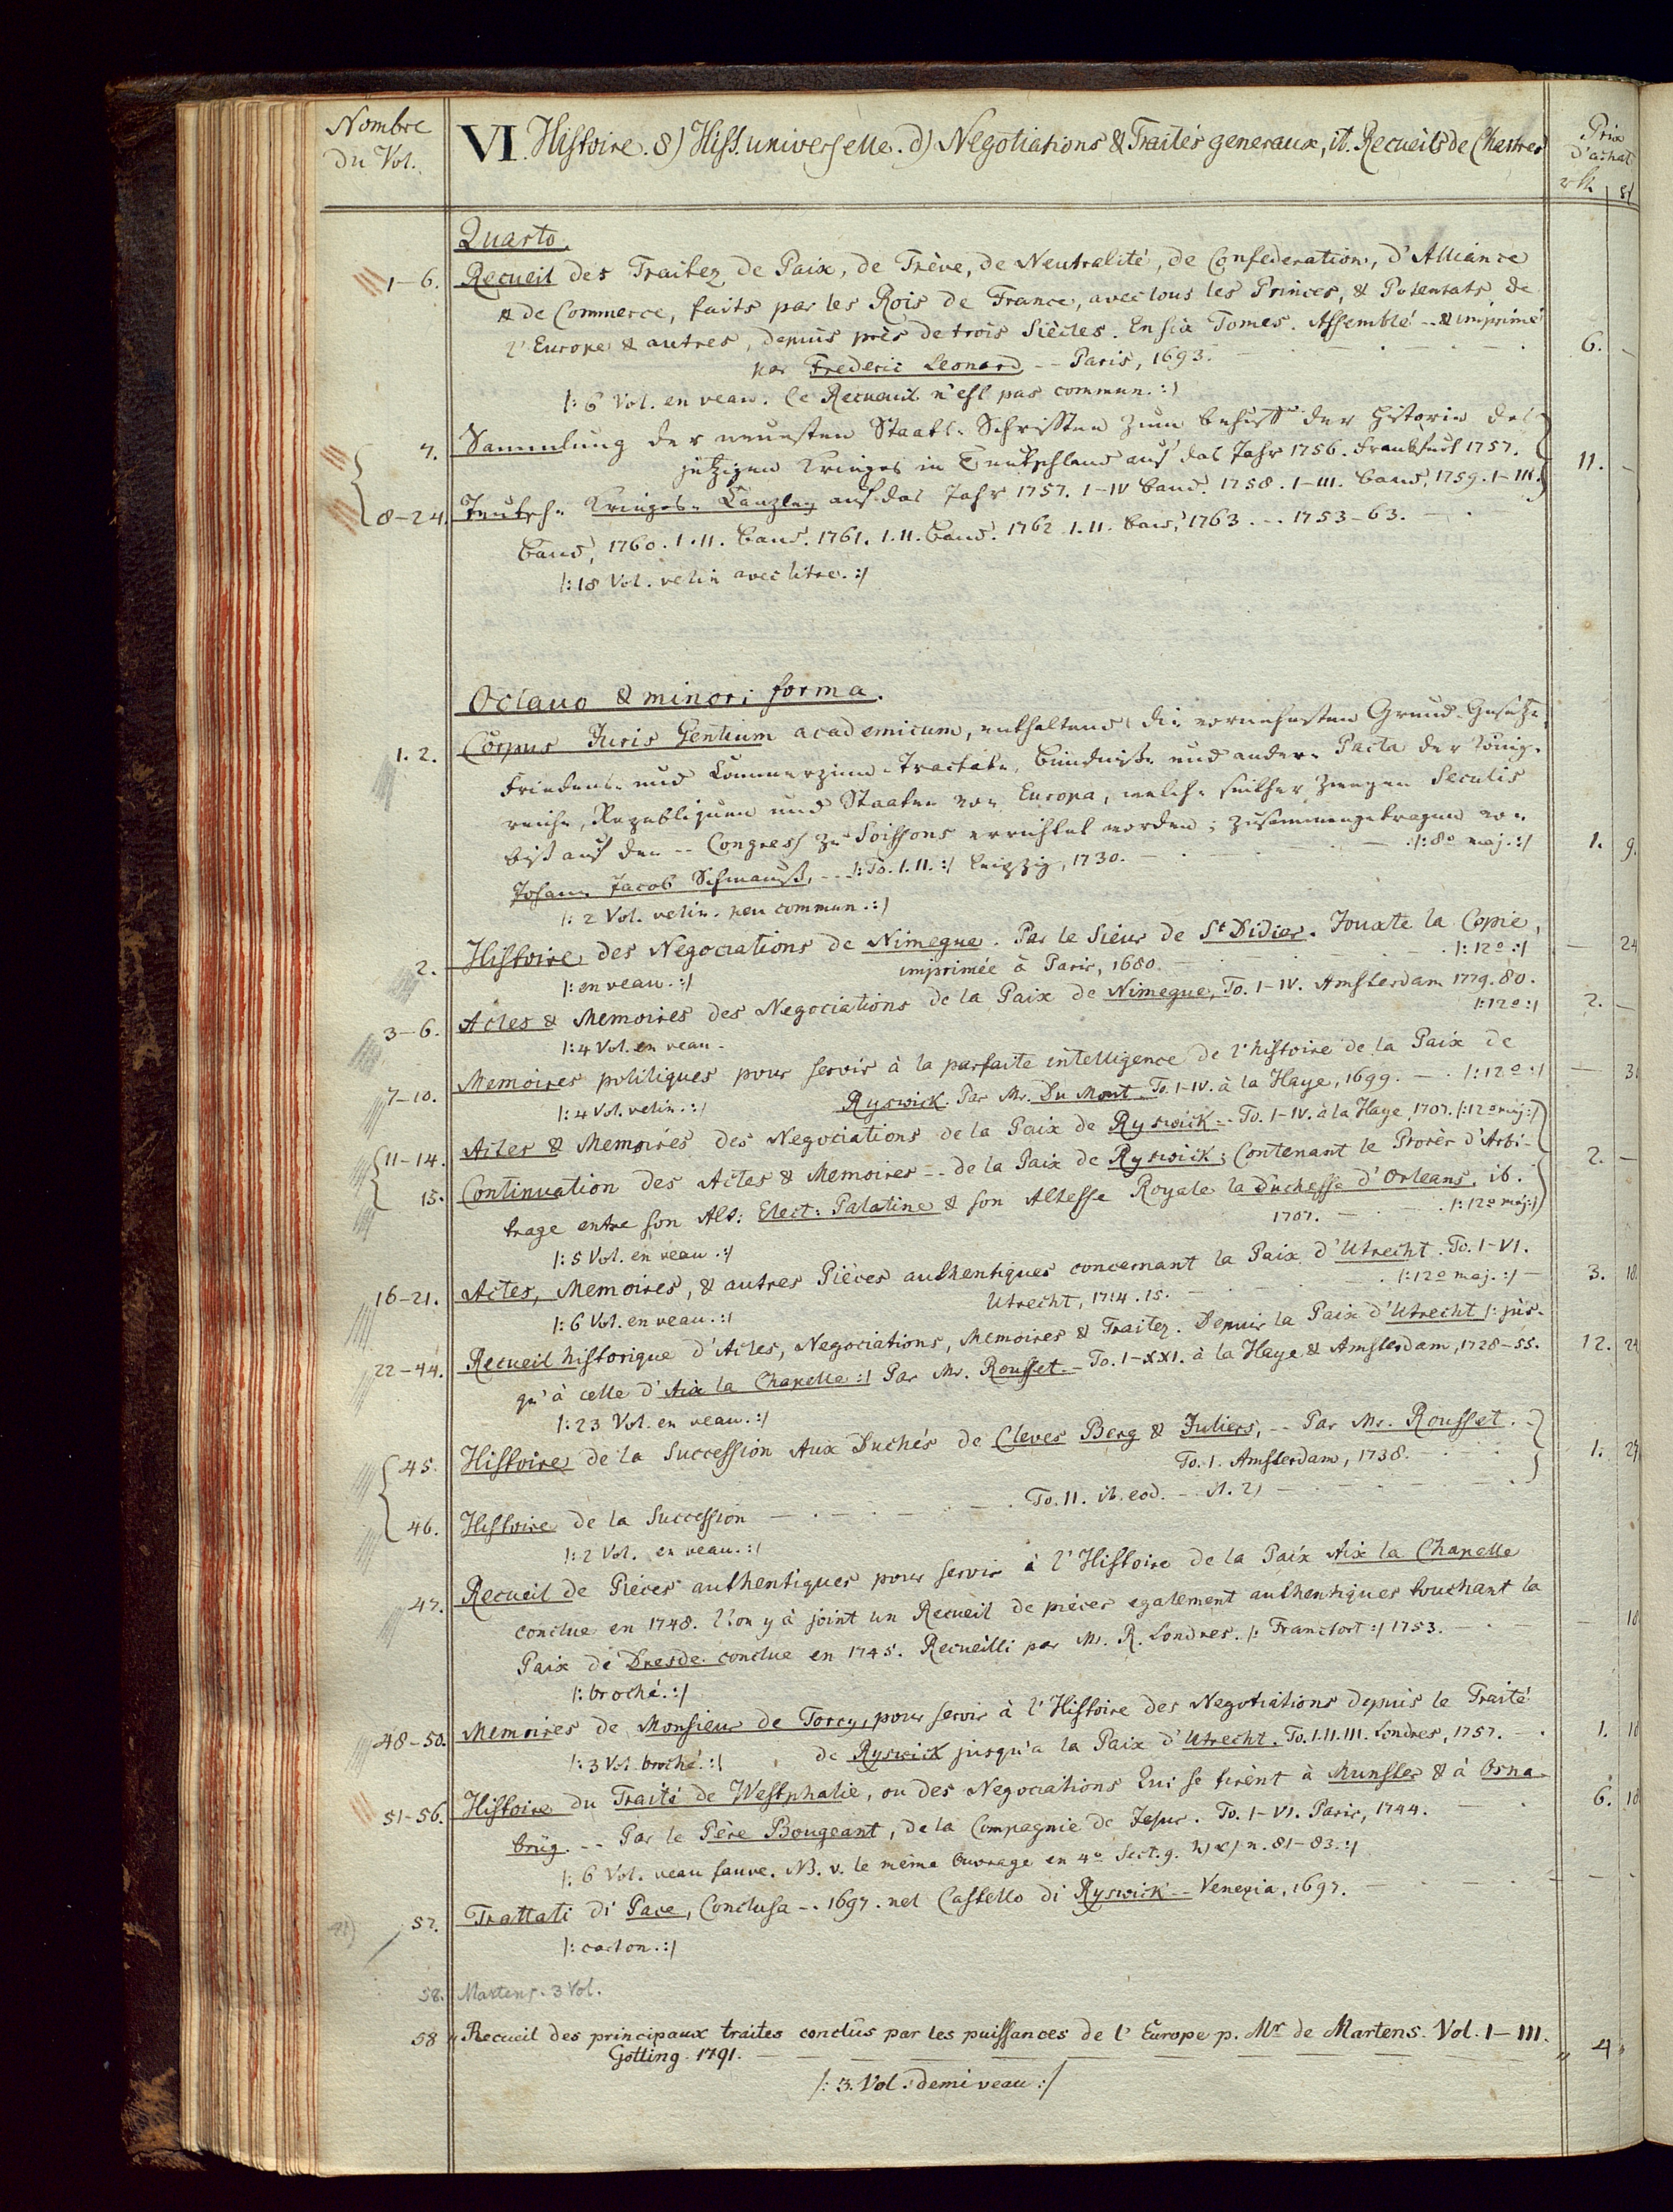 Nombre
du Vol.
VI. Histoire. 8) Hist. universelle. d) Negotiations & Traités generaux, it. Recueils de Chartres
Prix
d'achat
Quarto.
1-6. Recueil des Traitez de Paix, de Trève, de Neutralité, de Confederation, d'Alliance
& de Commerce, faits par les Rois de France, avec tous les Princes, & Potentats de
l'Europe & autres, depuis près de trois Siècles. En six Tomes. Assemblé -- & imprimé
par Frederic Leonard -- Paris, 1693. 6. -
/: 6 Vol. en veau. Ce Recueuil n'est pas commun. :/
7. Sammlung der neuesten Staats-Schrifften zum behuff der Historie des
jetzigen Krieges in Teutschland auf das Jahr 1756. Frankfurt 1757. 11. -
8-24. Teutsche Krieges-Canzley auf das Jahr 1757. I-IV band. 1758. I-III. band, 1759. I-III.
band, 1760. I.II. band. 1761. I.II. band. 1762 I.II. band, 1763. -. 1753-63.
/: 18 Vol. velin avec titre. :/
Octavo & minori forma.
1. 2. Corpus Juris Gentium academicum, enthaltend die vornehmsten Grund-Gesetze,
Friedens- und Commerzien-Tractate, Bündniße und andere Pacta der König-
reiche, Republiquen und Staaten von Europa, welche seither zweyen Seculis
biß auf den -- Congress zu Soissons errichtet worden; zusammengetragen von
Johann Jacob Schmauß, -- /: To. I. II. :/ Leipzig, 1730. /: 8o maj. :/ 1. 9.
/: 2 Vol. velin. peu commun. :/
2. Histoire des Negociations de Nimegue. Par le Sieur de St Didier. Jouxte la Copie,
imprimée à Paris, 1680. /: 12o :/ - 24
/: en veau. :/
3-6. Actes & Memoires des Negociations de la Paix de Nimegue, To. I-IV. Amsterdam 1779. 80.
/: 12o :/ 2. -
/: 4 Vol. en veau.
7-10. Memoires politiques pour servir à la parfaite intelligence de l'histoire de la Paix de
Ryswick. Par Mr. Du Mont To. I-IV. à la Haye, 1699. /: 12o :/ -
/: 4 Vol. velin. :/
11-14. Actes & Memoires des Negociations de la Paix de Ryswick -- To. I-IV. à la Haye 1707. /: 12o maj: /
15. Continuation des Actes & Memoires -- de la Paix de Ryswick; Contenant le Procès d'Arbi- 2. -
trage entre son Alt: Elect: Palatine & son Altesse Royale la Duchesse d'Orleans. ib.
1707. /: 12o maj: /
/: 5 Vol. en veau. :/
16-21. Actes, Memoires, & autres Pièces authentiques concernant la Paix d'Utrecht. To. I-VI.
Utrecht, 1714. 15. /: 12o maj. :/ 3. 18.
/: 6 Vol. en veau. :/
22-44. Recueil historique d'Actes, Negociations, Memoires & Traitez. Depuis la Paix d'Utrecht /: jus-
qu'à celle d'Aix la Chapelle :/ Par Mr. Rousset -- To. I-XXI. à la Haye & Amsterdam, 1728-55. 12. 24
/: 23 Vol. en veau. :/
45. Histoire de la Succession Aux Duchés de Cleves Berg & Juliers, -- Par Mr. Rousset.
To. I. Amsterdam, 1738. 1.
46. Histoire de la Succession - To. II. ib. eod.
/: 2 Vol. en veau. :/
47. Recueil de Pièces authentiques pour servir à l'Histoire de la Paix Aix la Chapelle
conclue en 1748. l'on y à joint un Recueil de pièces egalement authentiques touchant la
Paix de Dresde conclue en 1745. Recueilli par Mr. R. Londres. /: Francfort :/ 1753. -
/: broché. :/
48-50. Memoires de Monsieur de Torcy, pour servir à l'Histoire des Negotiations depuis le Traité
de Ryswick jusqu'a la Paix d'Utrecht. To. I. II. III. Londres, 1757. 1.
/: 3 Vol. broché. :/
51-56. Histoire du Traité de Westphalie, ou des Negociations Qui se firent à Munster & à Osna-
brüg. -- Par le Père Bougeant, de la Compagnie de Jesus. To. I-VI. Paris, 1744. 6.
/: 6 Vol. veau fauve. NB. v. le même Ouvrage en 4o Sect. 9. h) x) n. 81-83. :/
57. Trattati di Pace, Conclusa -. 1697. nel Castello di Ryswick -- Venezia, 1697. -
/: carton. :/
58. Martens. 3 Vol.
58 Recueil des principaux traites conclûs par les puissances de l'Europe p. Mr de Martens. Vol. I-III.
Götting. 1791. 4
/: 3. Vol. demi veau :/